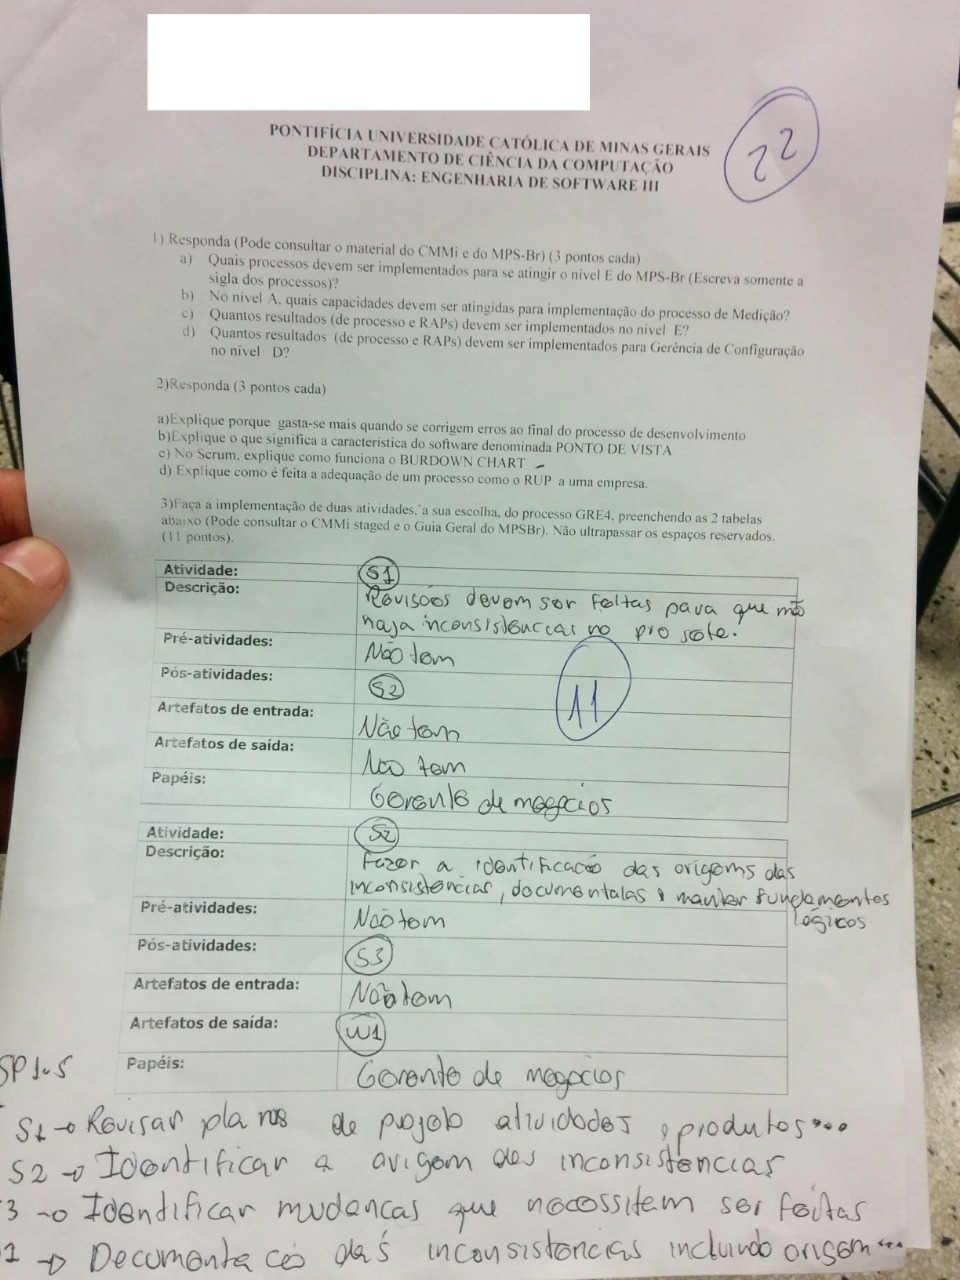 PONTIFÍCIA UNIVERSIDADE CATÓLICA DE MINAS GERAIS
DEPARTAMENTO DE CIÊNCIA DA COMPUTAÇÃO
DISCIPLINA: ENGENHARIA DE SOFTWARE III
22
1) Responda (Pode consultar o material do CMMi e do MPS-Br) (3 pontos cada)
a) Quais processos devem ser implementados para se atingir o nível E do MPS-Br (Escreva somente a
sigla dos processos)?
b) No nível A, quais capacidades devem ser atingidas para implementação do processo de Medição?
c) Quantos resultados (de processo e RAPs) devem ser implementados no nível E?
d) Quantos resultados (de processo e RAPs) devem ser implementados para Gerência de Configuração
no nível D?
2)Responda (3 pontos cada)
a)Explique porque gasta-se mais quando se corrigem erros ao final do processo de desenvolvimento
b)Explique o que significa a característica do software denominada PONTO DE VISTA
c) No Scrum, explique como funciona o BURDOWN CHART
d) Explique como é feita a adequação de um processo como o RUP a uma empresa.
3)Faça a implementação de duas atividades, a sua escolha, do processo GRE4, preenchendo as 2 tabelas
abaixo (Pode consultar o CMMi staged e o Guia Geral do MPSBr). Não ultrapassar os espaços reservados.
(11 pontos).
Atividade: S1
Descrição: Revisões devem ser feitas para que não
haja inconsistências no
Pré-atividades: Não tem
Pós-atividades: S2
11
Artefatos de entrada: Não tem
Artefatos de saída: Não tem
Papéis: Gerente de negócios
Atividade: S2
Descrição: Fazer a identificação das origens das
inconsistências, documentalas e manter fundamentos
lógicos
Pré-atividades: Não tem
Pós-atividades: S3
Artefatos de entrada: Não tem
Artefatos de saída: W1
Papéis: Gerente de negócios
SP 1.5
S1 → Revisar planos de projeto atividades, produtos...
S2 → Identificar a origem das inconsistências
3 → Identificar mudanças que necessitem ser feitas
1 → das inconsistencias incluindo origem...